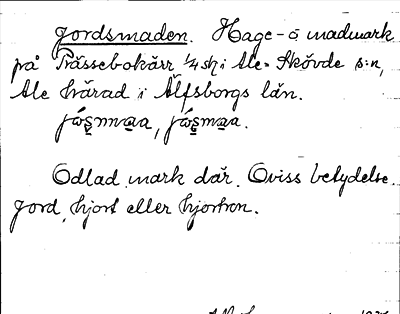 Jordsmaden. Hage- o madmark
på Prässebokärr 1/4 sh i Ale-Skövde s:n,
Ale härad i Älfsborgs län.
Odlad mark där. Oviss betydelse.
Jord, hjort eller hjortron.